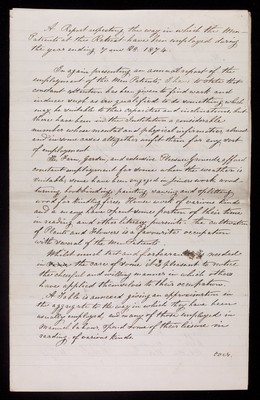 A Report respecting the way in which the Men
Patients at the Retreat have been employed during
the year ending 7 mo 30. 1874.
In again presenting an annual report of the
employment of the Men Patients, I have to state that
constant attention has been given to find work and
induce such as are qualified to do something which
may be suitable to their capacities and inclinations, but
there have been in the Institution a considerable
number whose mental and physical infirmities almost
and in some cases altogether unfit them for any sort
of employment
The Farm, garden, and extensive Pleasure Grounds, afford
constant employment for some when the weather is
suitable, some have been engaged in joiners work, wood
turning, bookbinding, painting, sawing and splitting
wood for kindling fires. House work of various kinds
and a many have spent some portion of their time
in reading and other literary pursuits. The cultivation
of Plants and Flowers is a favourite occupation
with several of the Men Patients
Whilst much tact and forbearance is needed
in the case of some it is pleasant to notice
the cheerful and willing manner in which others
have applied themselves to their occupations.
A Table is annexed giving an approximation in
the aggregate to the way in which they have been
usually employed, and many of those employed in
Manual Labour spend some of their leisure in
reading of various kinds.